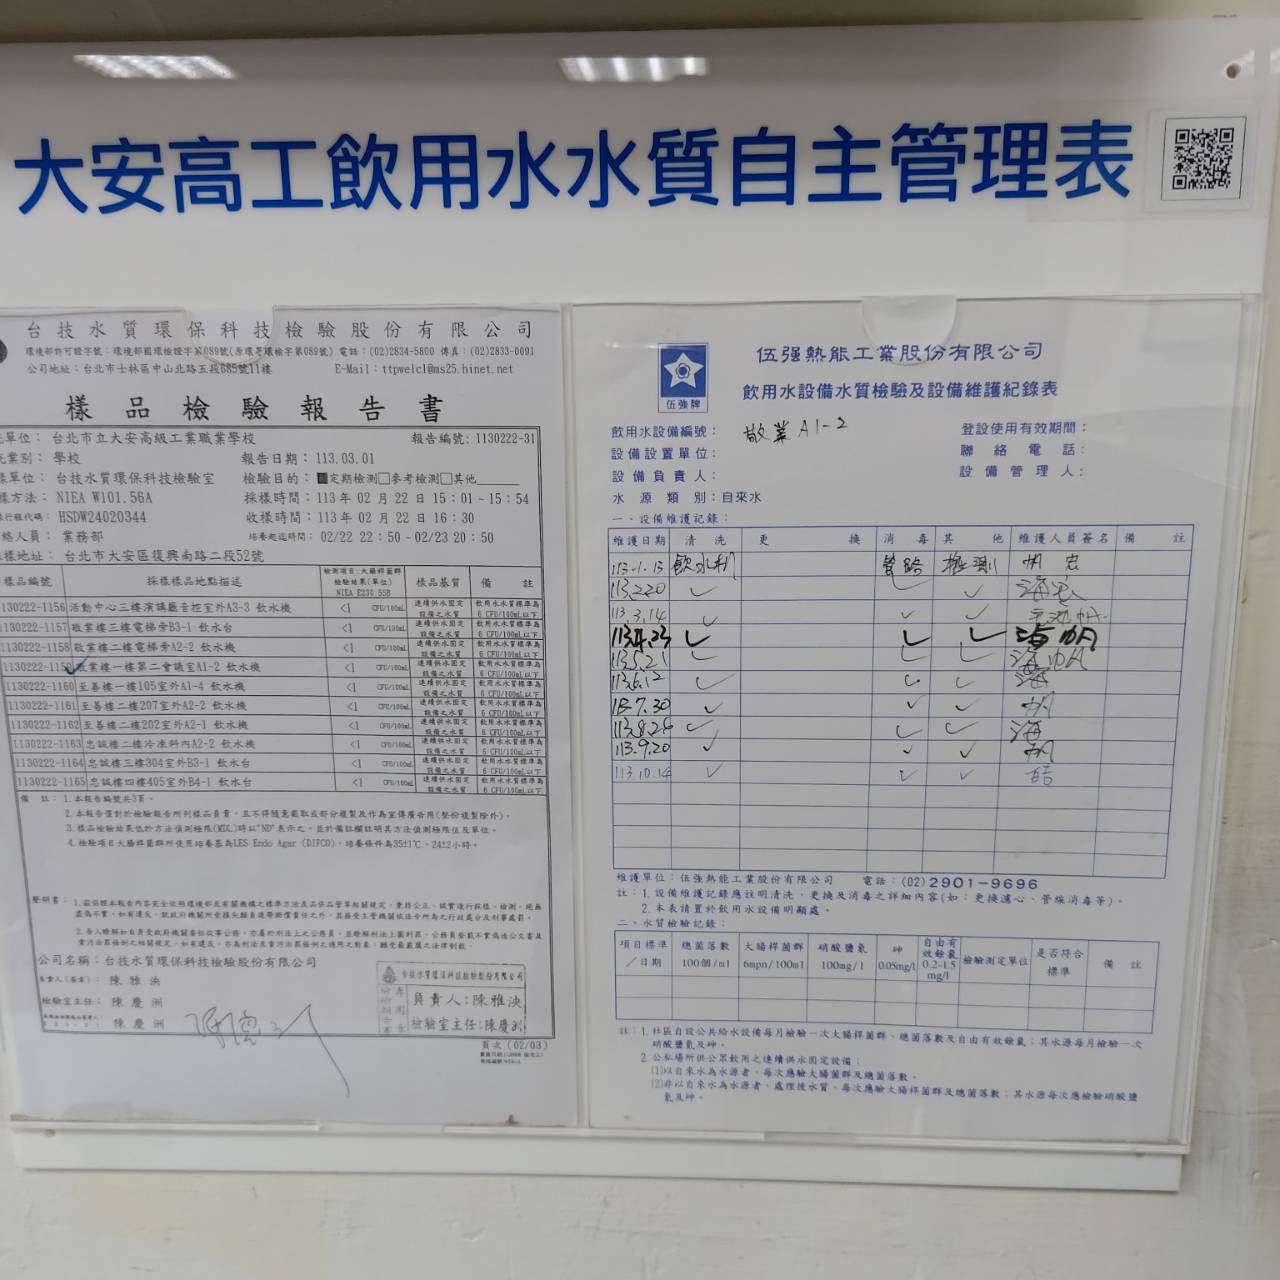 大安高工飲用水水質自主管理表
台技水質環保科技檢驗股份有限公司
環境部許可證字號：環境部國環檢證字第089號(原環署環檢字第089號) 電話：(02)2834-5800 傳真：(02)2833-0091
公司地址：台北市士林區中山北路五段685號11樓 E-Mail：ttpwelcl@ms25.hinet.net
樣品檢驗報告書
單位： 台北市立大安高級工業職業學校 報告編號：1130222-31
業別： 學校 報告日期：113.03.01
單位： 台技水質環保科技檢驗室 檢驗目的：■定期檢測□參考檢測□其他
樣方法： NIEA W101.56A 採樣時間：113 年 02 月 22 日 15：01 ~ 15：54
行程代碼： HSDW24020344 收樣時間：113 年 02 月 22 日 16：30
絡人員： 業務部 培養起迄時間：02/22 22：50 ~ 02/23 20：50
樣地址： 台北市大安區復興南路二段52號
樣品編號 採樣樣品地點描述 檢測項目:大腸桿菌群 檢驗結果(單位) NIEA E230.55B 樣品基質 備 註
1130222-1156 活動中心三樓演講廳音控室外A3-3 飲水機 <1 CFU/100mL 連續供水固定設備之水質 飲用水水質標準為 6 CFU/100mL以下
1130222-1157 敬業樓三樓電梯旁B3-1 飲水台 <1 CFU/100mL 連續供水固定設備之水質 飲用水水質標準為 6 CFU/100mL以下
1130222-1158 敬業樓二樓電梯旁A2-2 飲水機 <1 CFU/100mL 連續供水固定設備之水質 飲用水水質標準為 6 CFU/100mL以下
1130222-1159 敬業樓一樓第二會議室A1-2 飲水機 <1 CFU/100mL 連續供水固定設備之水質 飲用水水質標準為 6 CFU/100mL以下
1130222-1160 至善樓一樓105室外A1-4 飲水機 <1 CFU/100mL 連續供水固定設備之水質 飲用水水質標準為 6 CFU/100mL以下
1130222-1161 至善樓二樓207室外A2-2 飲水機 <1 CFU/100mL 連續供水固定設備之水質 飲用水水質標準為 6 CFU/100mL以下
1130222-1162 至善樓二樓202室外A2-1 飲水機 <1 CFU/100mL 連續供水固定設備之水質 飲用水水質標準為 6 CFU/100mL以下
1130222-1163 忠誠樓二樓冷凍科內A2-2 飲水機 <1 CFU/100mL 連續供水固定設備之水質 飲用水水質標準為 6 CFU/100mL以下
1130222-1164 忠誠樓三樓304室外B3-1 飲水台 <1 CFU/100mL 連續供水固定設備之水質 飲用水水質標準為 6 CFU/100mL以下
1130222-1165 忠誠樓四樓405室外B4-1 飲水台 <1 CFU/100mL 連續供水固定設備之水質 飲用水水質標準為 6 CFU/100mL以下
備 註： 1.本報告編號共3頁。
2.本報告僅對於檢驗報告所列樣品負責，且不得隨意截取或部分複製及作為宣傳廣告用(整份複製除外)。
3.樣品檢驗結果低於方法偵測極限(MDL)時以"ND"表示之，並於備註欄註明其方法偵測極限值及單位。
4.檢驗項目大腸桿菌群所使用培養基為LES Endo Agar (DIFCO)，培養條件為35±1℃、24±2小時。
聲明書：
公司名稱：台技水質環保科技檢驗股份有限公司
負責人(簽章)： 陳雅泱
檢驗室主任： 陳慶洲
陳慶洲
台技水質環保科技檢驗股份有限公司
負責人：陳雅泱
檢驗室主任：陳慶洲
頁次 (02/03)
伍強牌
伍強熱能工業股份有限公司
飲用水設備水質檢驗及設備維護紀錄表
飲用水設備編號： 敬業 A1-2 登設使用有效期間：
設備設置單位： 聯 絡 電 話：
設備負責人： 設備管理人：
水源類別：自來水
一、設備維護記錄：
維護日期 清洗 更換 消毒 其他 維護人員簽名 備註
113.1.13 飲水机 管路 檢測
113.2.20 ✓ ✓ ✓
113.3.14 ✓ ✓ ✓
113.4.23 ✓ ✓ ✓ 海帆
113.5.21 ✓ ✓ ✓ 海帆
113.6.12 ✓ ✓ ✓ 海
113.7.30 ✓ ✓ ✓ 帆
113.8.28 ✓ ✓ ✓ 海
113.9.20 ✓ ✓ ✓ 帆
113.10.14 ✓ ✓ ✓
維護單位：伍強熱能工業股份有限公司 電話：(02)2901-9696
註：1.設備維護記錄應註明清洗、更換及消毒之詳細內容(如：更換濾心、管線消毒等)。
2.本表請置於飲用水設備明顯處。
二、水質檢驗記錄：
項目標準／日期 總菌落數 100個/ml 大腸桿菌群 6mpn/100ml 硝酸鹽氮 100mg/l 砷 0.05mg/l 自由有效餘氯 0.2-1.5 mg/l 檢驗測定單位 是否符合標準 備註
註：1.社區自設公共給水設備每月檢驗一次大腸桿菌群、總菌落數及自由有效餘氯；其水源每月檢驗一次
硝酸鹽氮及砷。
2.公私場所供公眾飲用之連續供水固定設備：
(1)以自來水為水源者，每次應驗大腸桿菌群及總菌落數。
(2)非以自來水為水源者，處理後水質，每次應驗大腸桿菌群及總菌落數；其水源每次應檢驗硝酸鹽
氮及砷。